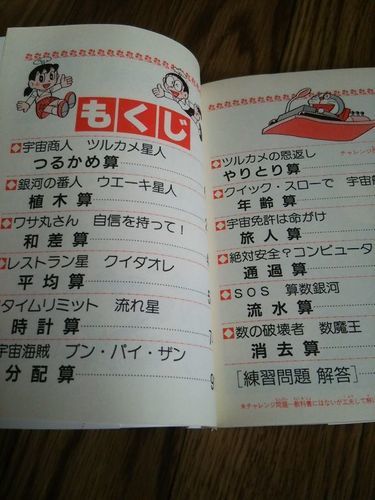 もくじ
宇宙商人 ツルカメ星人
つるかめ算
銀河の番人 ウエーキ星人
植木算
ワサ丸さん 自信を持って!
和差算
レストラン星 クイダオレ
平均算
タイムリミット 流れ星
時計算
宇宙海賊 ブン・パイ・ザン
分配算
チャレンジ
ツルカメの恩返し
やりとり算
クイック・スローで 宇宙
年齢算
宇宙免許は命がけ
旅人算
絶対安全?コンピュータ
通過算
SOS 算数銀河
流水算
数の破壊者 数魔王
消去算
[練習問題 解答]
★チャレンジ問題―教科書にはないが工夫して解